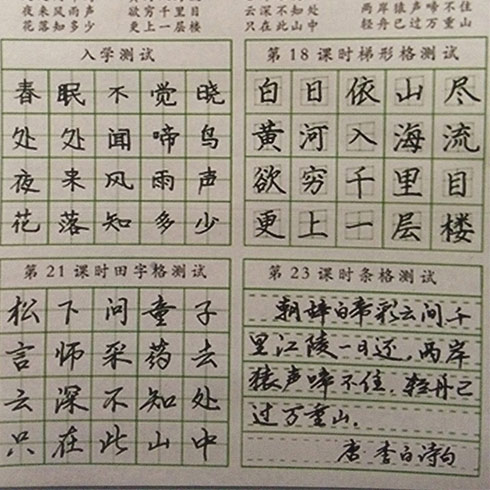 夜来风雨声 欲穷千里目 云深不知处 两岸猿声啼不住
花落知多少 更上一层楼 只在此山中 轻舟已过万重山
入学测试
春眠不觉晓
处处闻啼鸟
夜来风雨声
花落知多少
第18课时梯形格测试
白日依山尽
黄河入海流
欲穷千里目
更上一层楼
第21课时田字格测试
松下问童子
言师采药去
云深不知处
只在此山中
第23课时条格测试
朝辞白帝彩云间千
里江陵一日还，两岸
猿声啼不住.轻舟已
过万重山.
唐 李白诗句